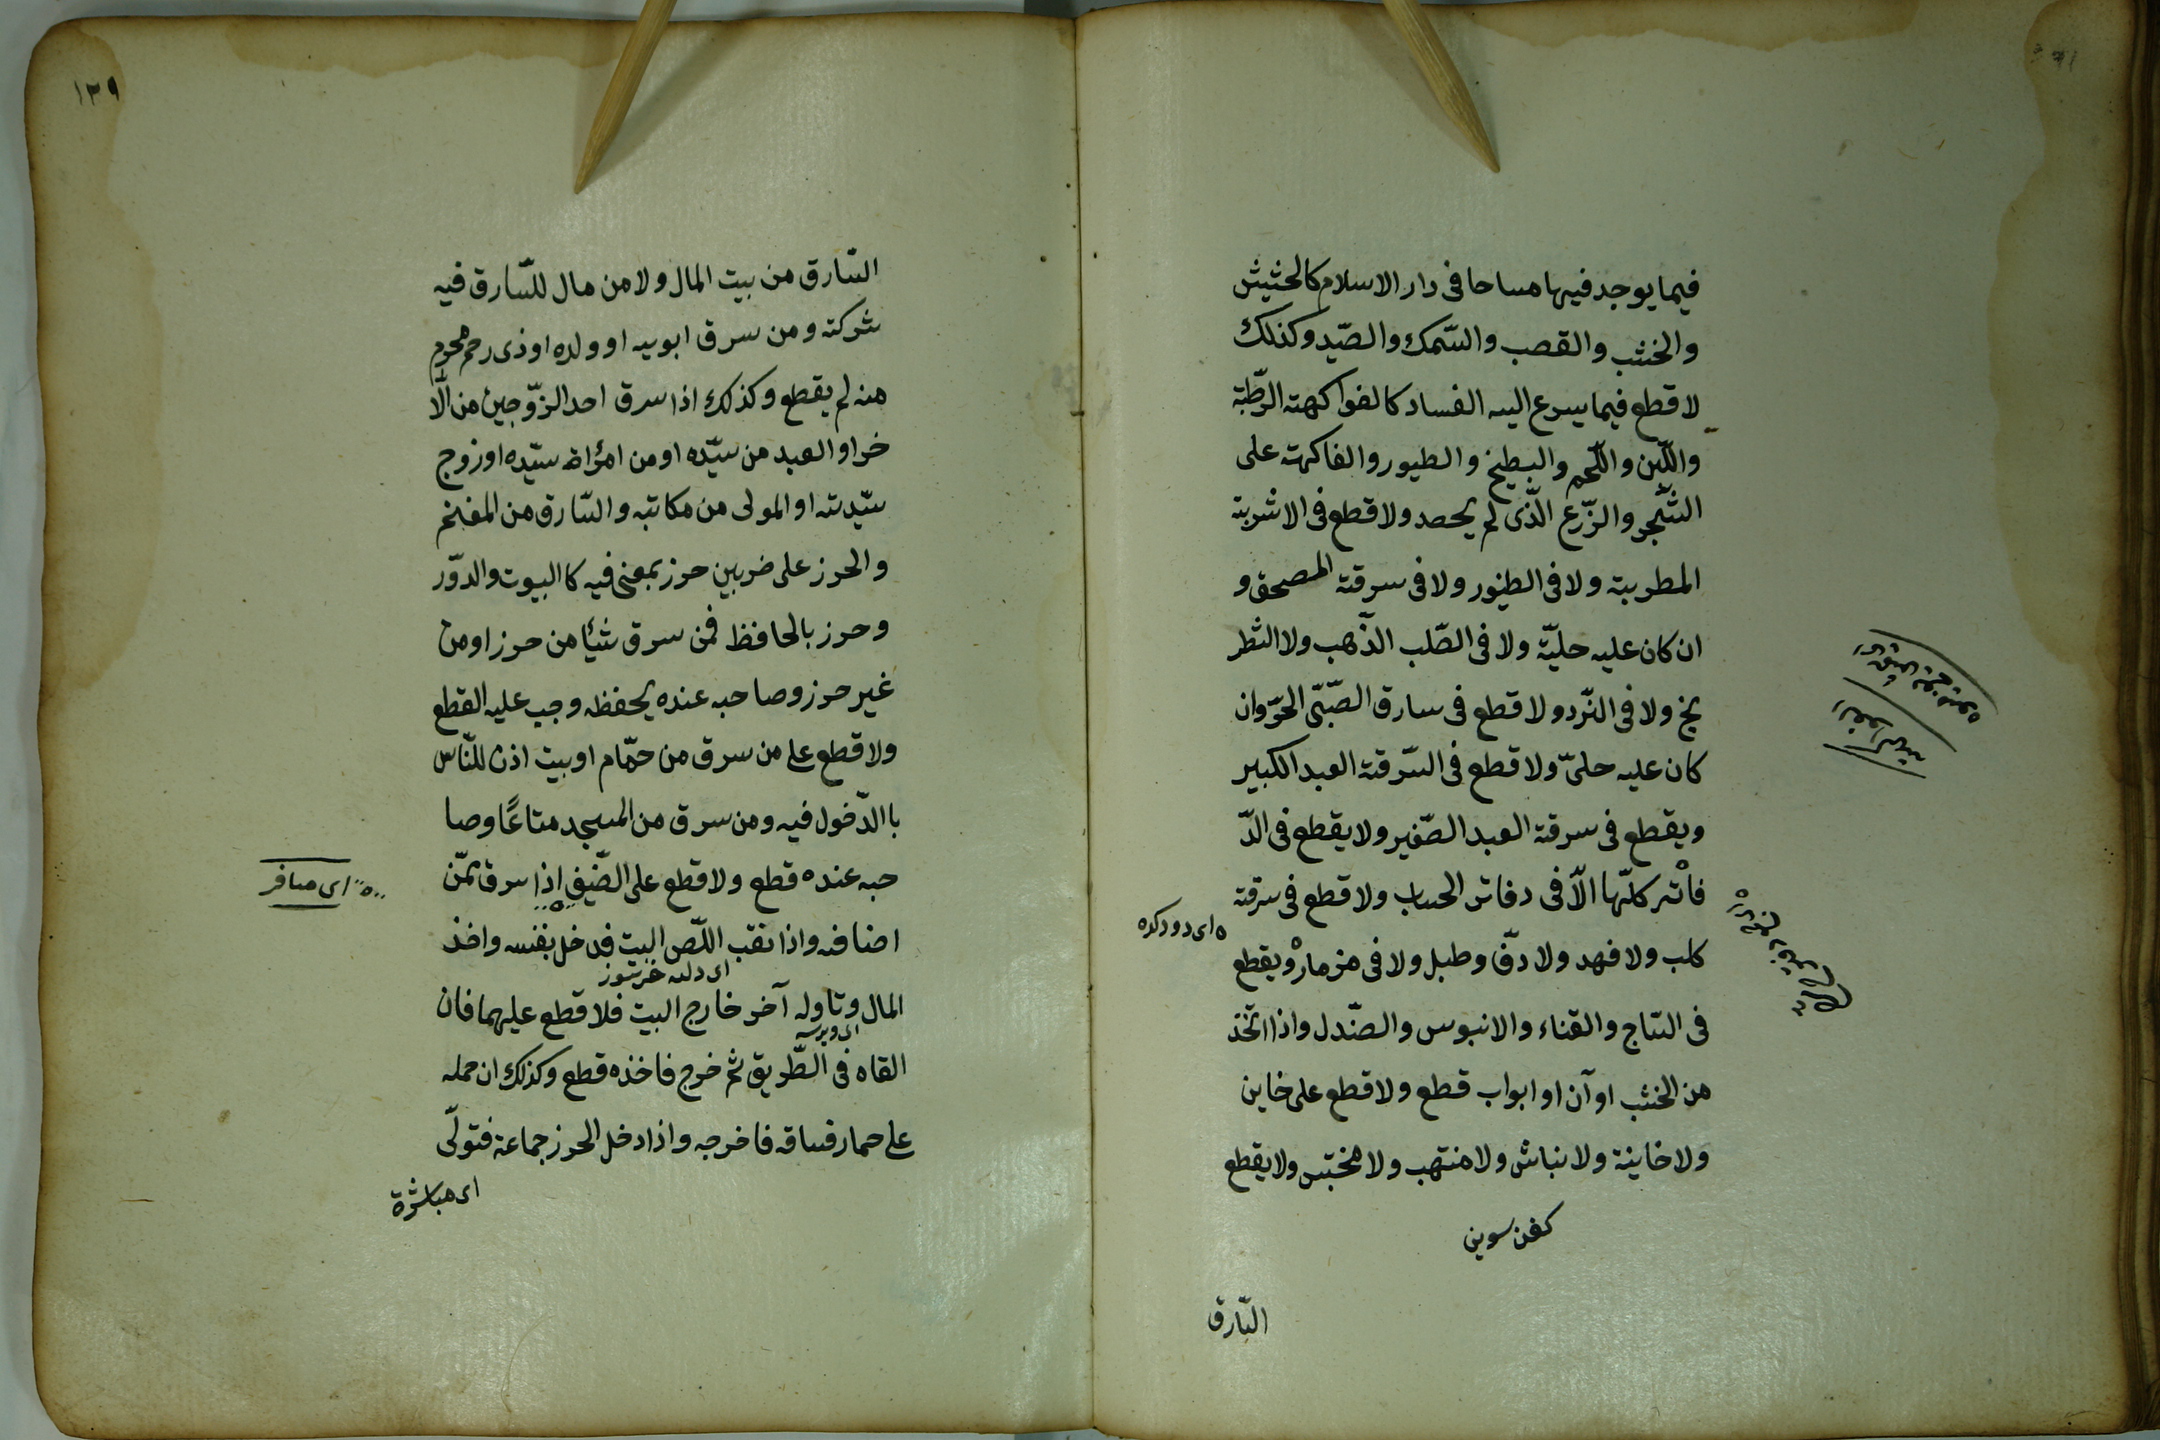 فيما يوجد فيها مباحا فى دار الاسلام كالحشيش
والخشب والقصب والسّمك والصّيد وكذلك
لا قطع فيما يسرع اليه الفساد كالفواكهة الرّطبة
واللّبن واللّحم والبطيخ والطيور والفاكهة على
الشّجر والزّرع الّذى لم يحصد ولا قطع فى الاشربة
المطربة ولا فى الطنبور ولا فى سرقة المصحف و
ان كان عليه حليّة ولا فى الصّلب الذّهب ولا الشطر
نج ولا فى النّرد ولا قطع فى سارق الصّبىّ الحرّ وان
كان عليه حلىّ ولا قطع فى السّرقة العبد الكبير
ويقطع فى سرقة العبد الصّغير ولا يقطع فى الدّ
فاتر كلّها الّا فى دفاتر الحساب ولا قطع فى سرقة
ه اى دودكده
كلب ولا فهد ولا دفّ وطبل ولا فى مزمار ويقطع
فى السّاج والقناء والانبوس والصّندل واذا اتّخذ
من الخشب او آن او ابواب قطع ولا قطع على خاين
ولا خاينة ولا نباش ولا منتهب ولا مختبس ولا يقطع
كفن سوين
السّارق
١٣٩
السّارق من بيت المال ولا من مال للسّارق فيه
شركة ومن سرق ابويه او ولده او ذى رحم محرم
منه لم يقطع وكذلك اذا سرق احد الزّوجين من الّا
خر او العبد من سيّده او من امرأة سيّده او زوج
سيّدته او المولى من مكاتبه والسّارق من المغنم
والحرز على ضربين حرز بمعنى فيه كا البيوت والدوّر
وحرز بالحافظ فمن سرق شيًا من حرز او من
غير حرز وصاحبه عنده يحفظه وجب عليه القطع
ولا قطع على من سرق من حمّام او بيت اذن للنّاس
با الدّخول فيه ومن سرق من المسجد متاعًا وصا
حبه عنده قطع ولا قطع على الضّيف اذا سرق ممّن
ه اى مسافر
اضافه واذا نقب اللّص البيت فدخل بنفسه واخذ
اى دلد خرسوز
المال وناوله آخر خارج البيت فلا قطع عليهما فان
اى ويرسه
القاه فى الطّريق ثم خرج فاخذه قطع وكذلك ان حمله
على حمار فساقه فاخرجه واذا دخل الحرز جماعة فتولّى
اى مباشرة